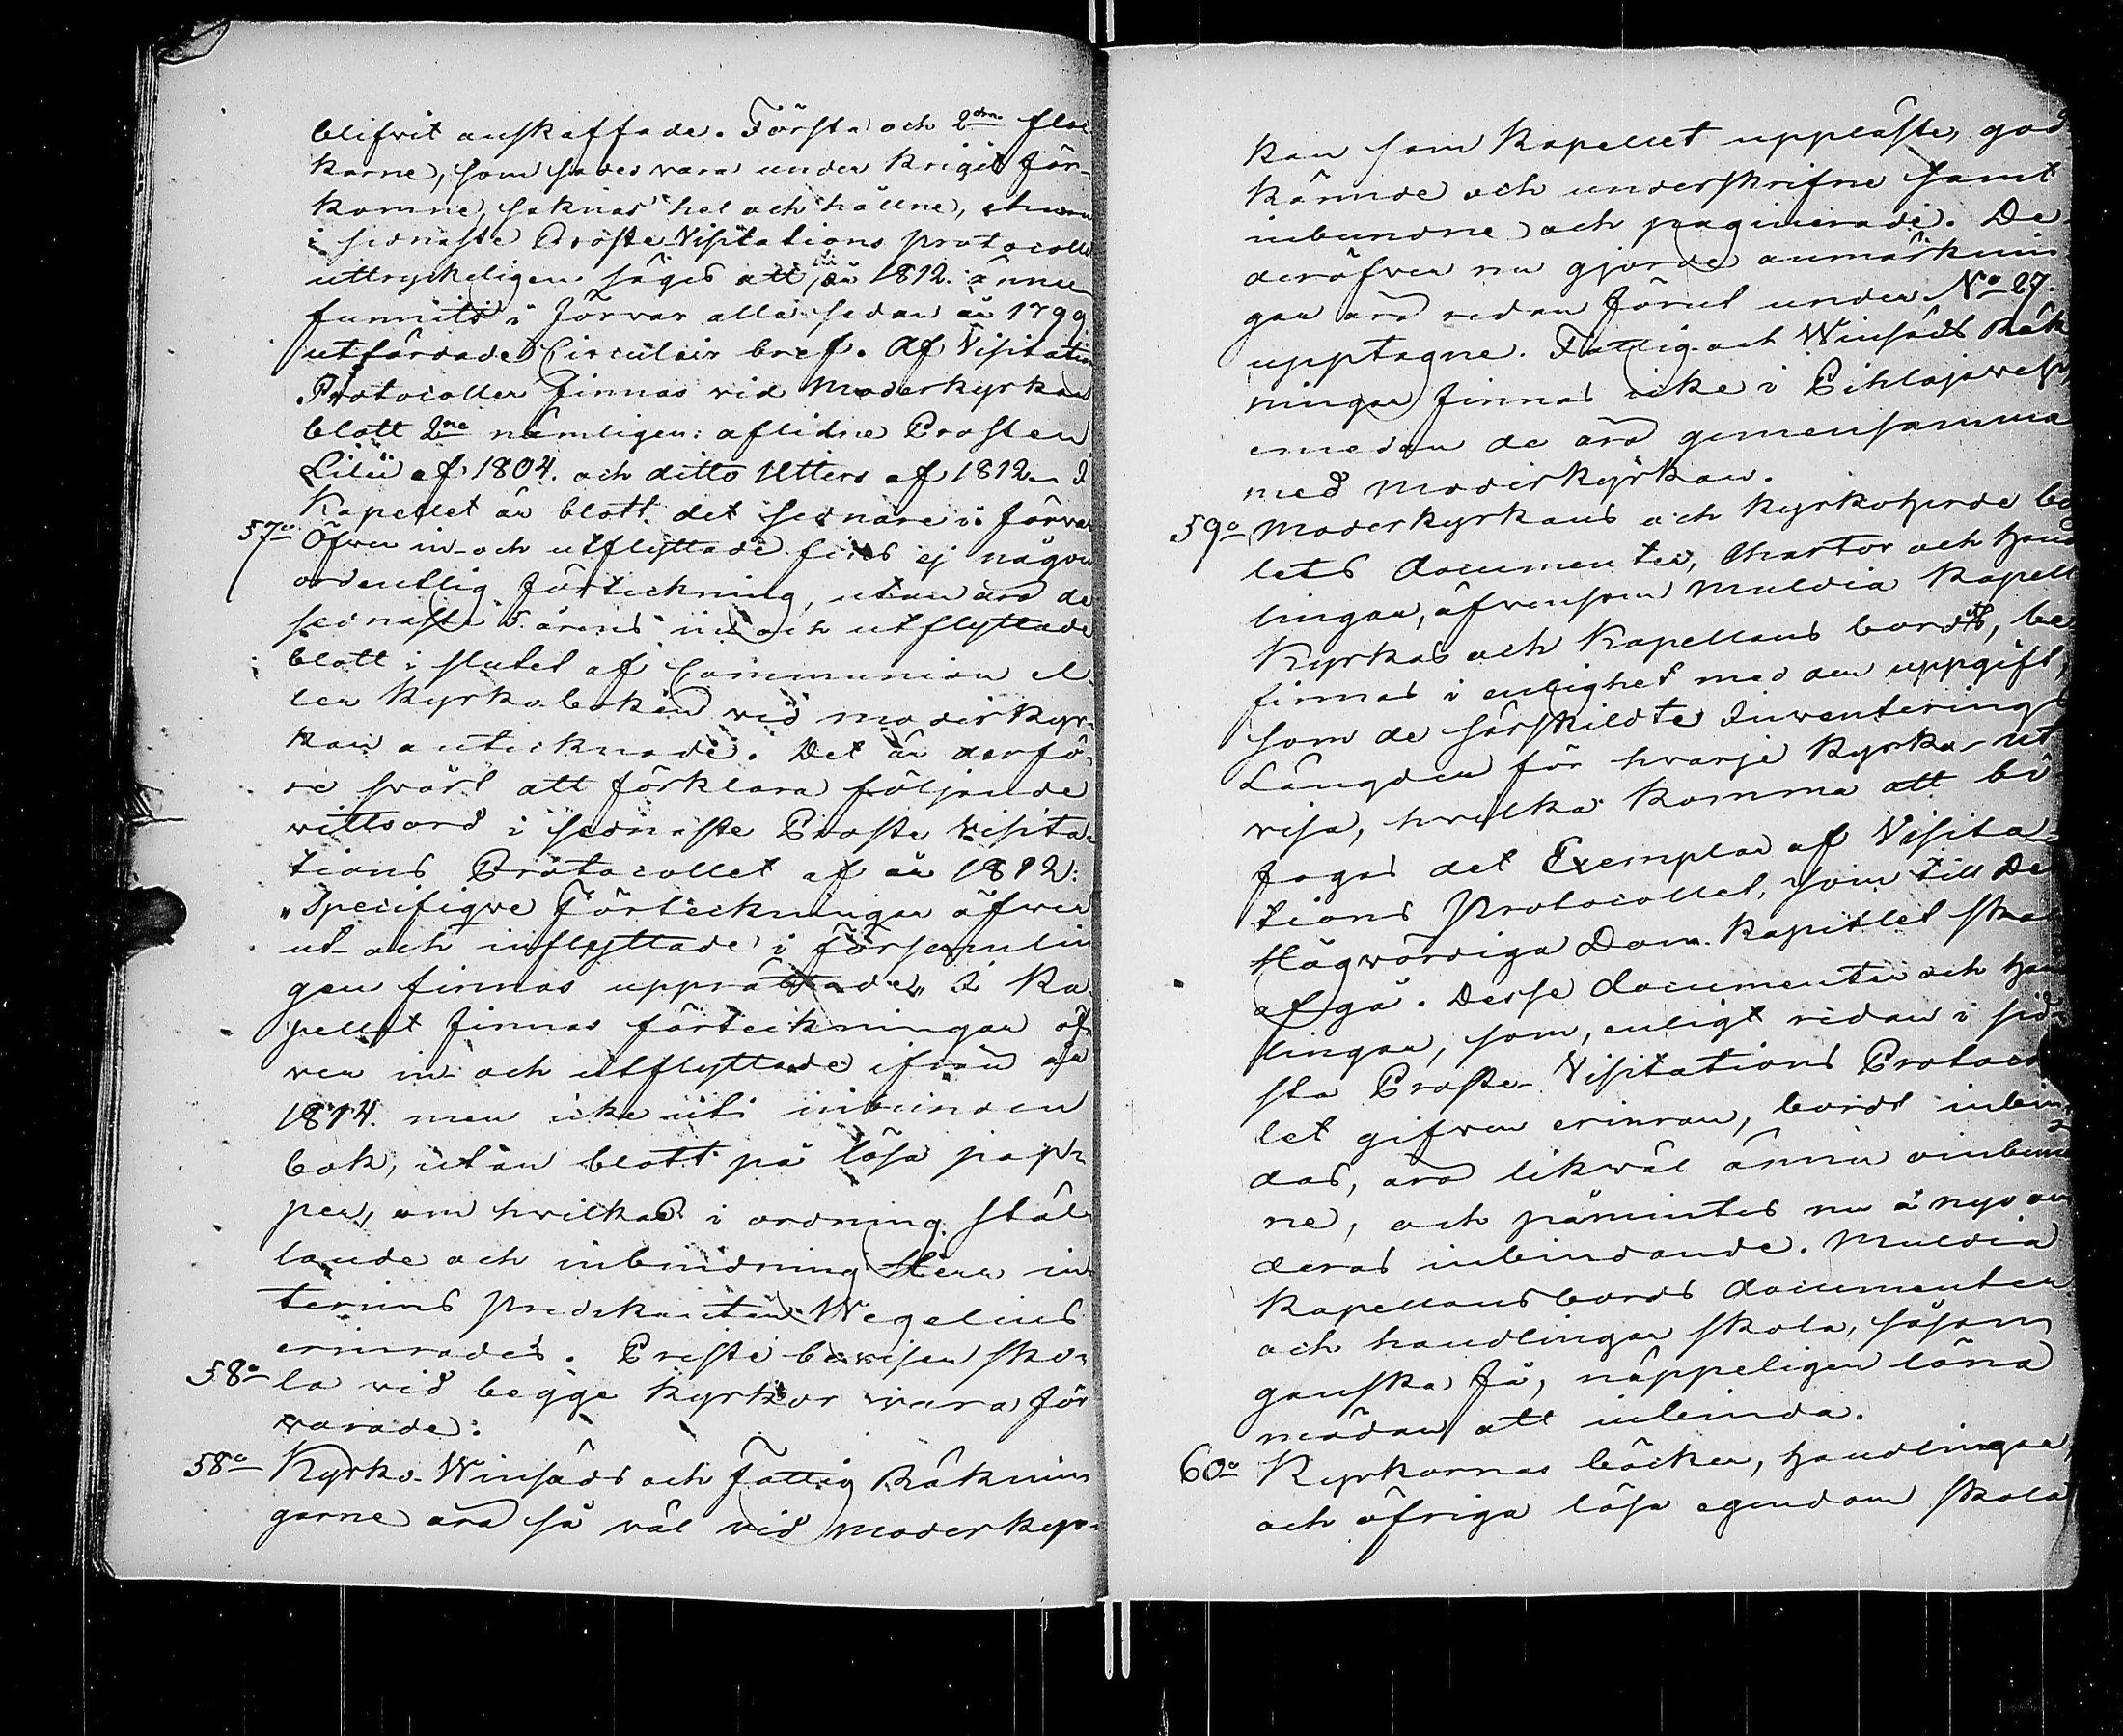 blifvit anskaffade. Första och 2dra floc
karne, som sades vara under kriget för-
komne, saknas hel och hållne, ehuru
i sednaste Prosta Visitations protocollet
uttryckeligen säges att, år 1812. ännu
funnits i förvar alla sedan år 1799
utfärdade Circulair bref. Af Visitations
Protocoller finnas vid Moderkyrkan
blott 2ne nämligen: aflidne Prosten
Lilii af 1804. och ditto Utters af 1812. I
Kapellet är blott det sednare i förvar
57o Öfver in- och utflyttade fins ej någon
ordentlig förteckning, utan äro de
sednaste 5. årens in och utflyttade
blott i slutet af Communion el-
ler Kyrkoboken vid moderkyr-
kan antecknade. Det är derfö-
re svårt att förklara följande
vittsord i sednaste Prosta Visita-
tions Protocollet af år 1812:
"Specifiqve Förteckningar öfver
ut- och inflyttade i församlin
gen finnas upprättade" I Ka-
pellet finnas förteckningar öf-
ver in- och utflyttade ifrån år
1814. men icke uti inbunden
bok, utan blott på lösa pap-
per, om hvilkas i ordning stäl-
lande och inbindning Herr in-
terims Predikanten Wegelius
erinrades. Preste bevisen sko-
58o la vid begge Kyrkor vara för
varade.
58o Kyrko- Winsäds och Fattig Räknin
garne äro så väl vid moderkyr-
kan som Kapellet uppläste, god
kännde och underskrifne samt
inbundne och paginerade. De
deröfver nu gjorde anmärknin
gar äro redan förut under No 27.
upptagne. Fattig- och Winsäds Räk
ningar finnas icke i Pihlajavesi,
emedan de äro gemensamma
med moderkyrkan.
59o Moderkyrkans och Kyrkoherde bo
lets documenter, Chartor och hand
lingar, äfvensom Muldia Kapell
Kyrkas och Kapellans bords, be-
finnas i enlighet med den uppgift,
som de särskildte Inventerings
Längder för hvarje Kyrka ut
visa, hvilka komma att bi
fogas det Exemplar af Visita-
tions Protocollet, som till Det
Högvördiga Dom-Kapitlet skall
afgå. Desse documenter och hand
lingar, som, enligt redan i sid-
sta Prosta- Visitations Protocol
let gifven erinran, bordt inbin-
das, äro likväl ännu oinbund
ne, och påmintes nu å nyo om
deras inbindande. Muldia
Kapellansbords documenter
och handlingar skola, såsom
ganska få, näppeligen löna
mödan att inbinda.
60o Kyrkornas böcker, handlingar,
och öfriga lösa egendom skola